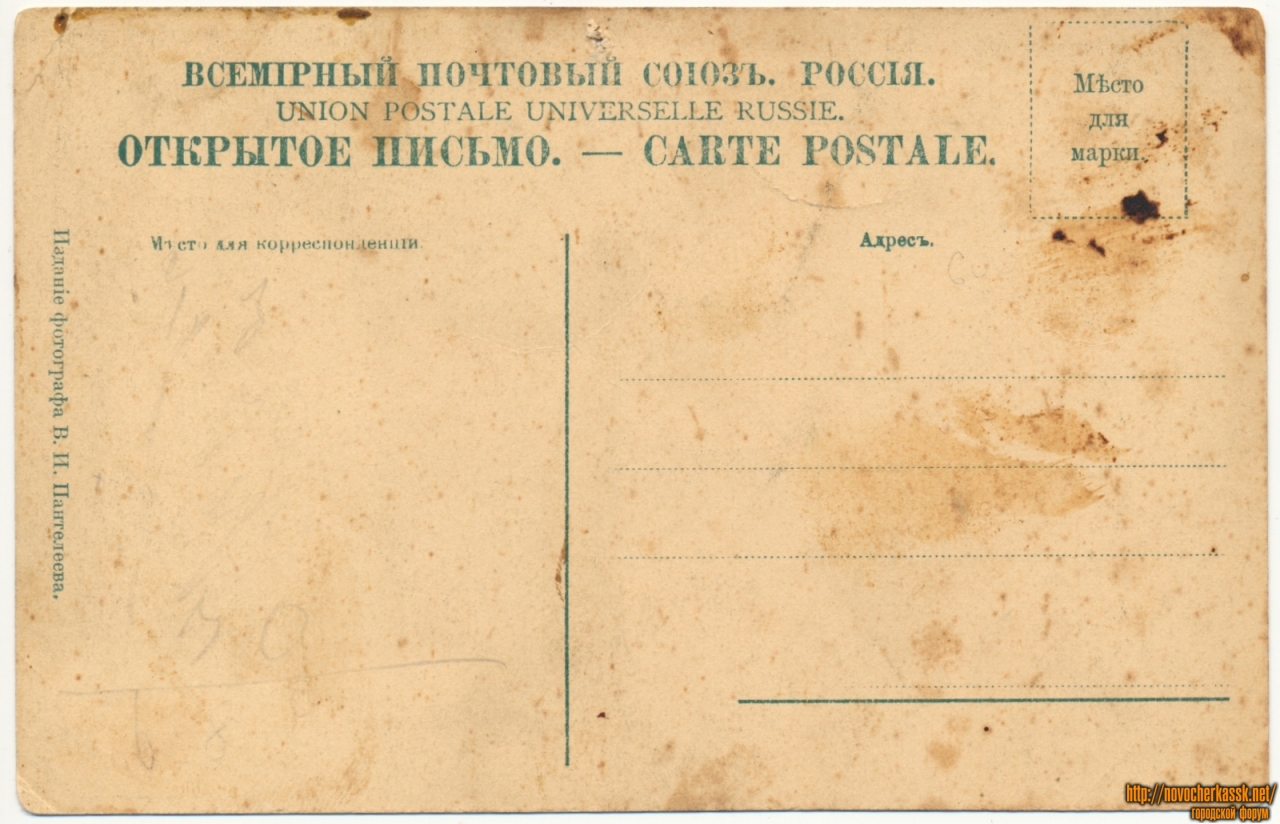 ВСЕМІРНЫЙ ПОЧТОВЫЙ СОЮЗЪ. РОССІЯ.
UNION POSTALE UNIVERSELLE RUSSIE.
ОТКРЫТОЕ ПИСЬМО. — CARTE POSTALE.
Мѣсто
для
марки.
Мѣсто для корреспонденціи.
Адресъ.
Изданіе фотографа В. И. Пантелеева.
http://novocherkassk.net/
городской форум